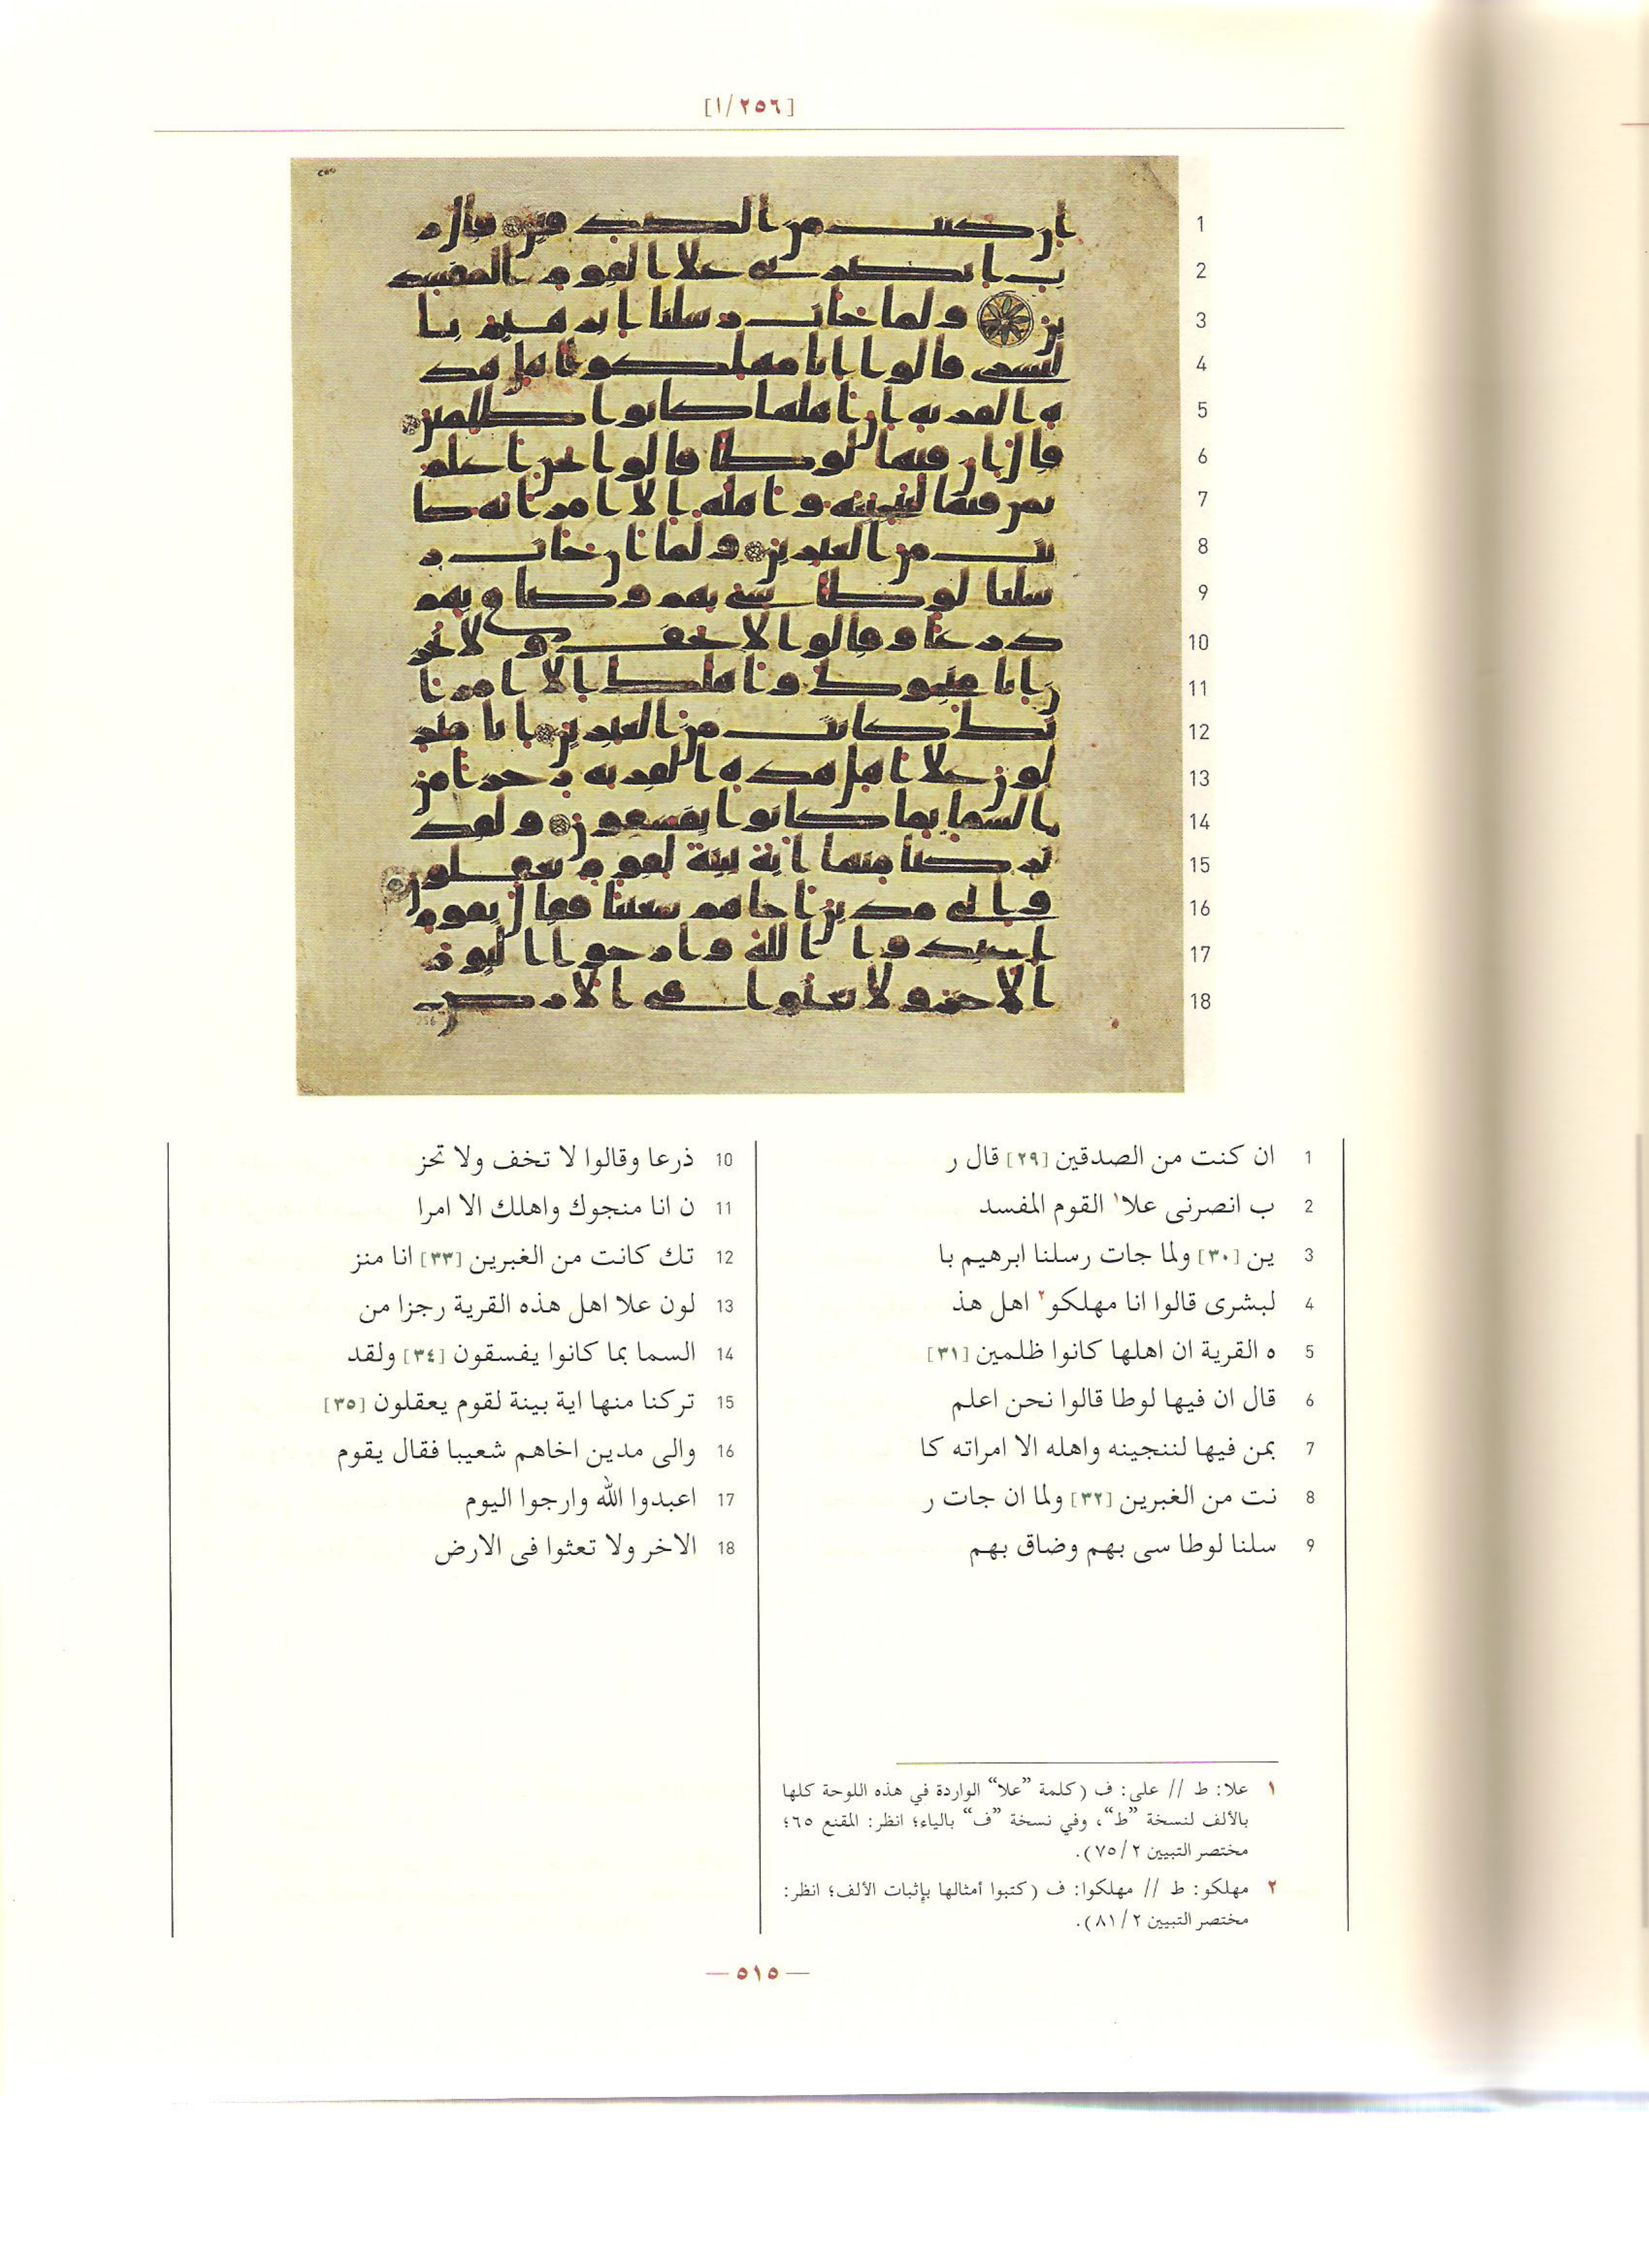 [٢٥٦/١]
1 ان كنت من الصدقين [٢٩] قال ر
2 ب انصرنى علا١ القوم المفسد
3 ين [٣٠] ولما جات رسلنا ابرهيم با
4 لبشرى قالوا انا مهلكو٢ اهل هذ
5 ه القرية ان اهلها كانوا ظلمين [٣١]
6 قال ان فيها لوطا قالوا نحن اعلم
7 بمن فيها لننجينه واهله الا امراته كا
8 نت من الغبرين [٣٢] ولما ان جات ر
9 سلنا لوطا سى بهم وضاق بهم
10 ذرعا وقالوا لا تخف ولا تحز
11 ن انا منجوك واهلك الا امرا
12 تك كانت من الغبرين [٣٣] انا منز
13 لون علا اهل هذه القرية رجزا من
14 السما بما كانوا يفسقون [٣٤] ولقد
15 تركنا منها اية بينة لقوم يعقلون [٣٥]
16 والى مدين اخاهم شعيبا فقال يقوم
17 اعبدوا الله وارجوا اليوم
18 الاخر ولا تعثوا فى الارض
١ علا: ط // على: ف (كلمة ”علا“ الواردة في هذه اللوحة كلها
بالألف لنسخة ”ط“، وفي نسخة ”ف“ بالياء؛ انظر: المقنع ٦٥؛
مختصر التبيين ٧٥/٢).
٢ مهلكو: ط // مهلكوا: ف (كتبوا أمثالها بإثبات الألف؛ انظر:
مختصر التبيين ٨١/٢).
— ٥١٥ —